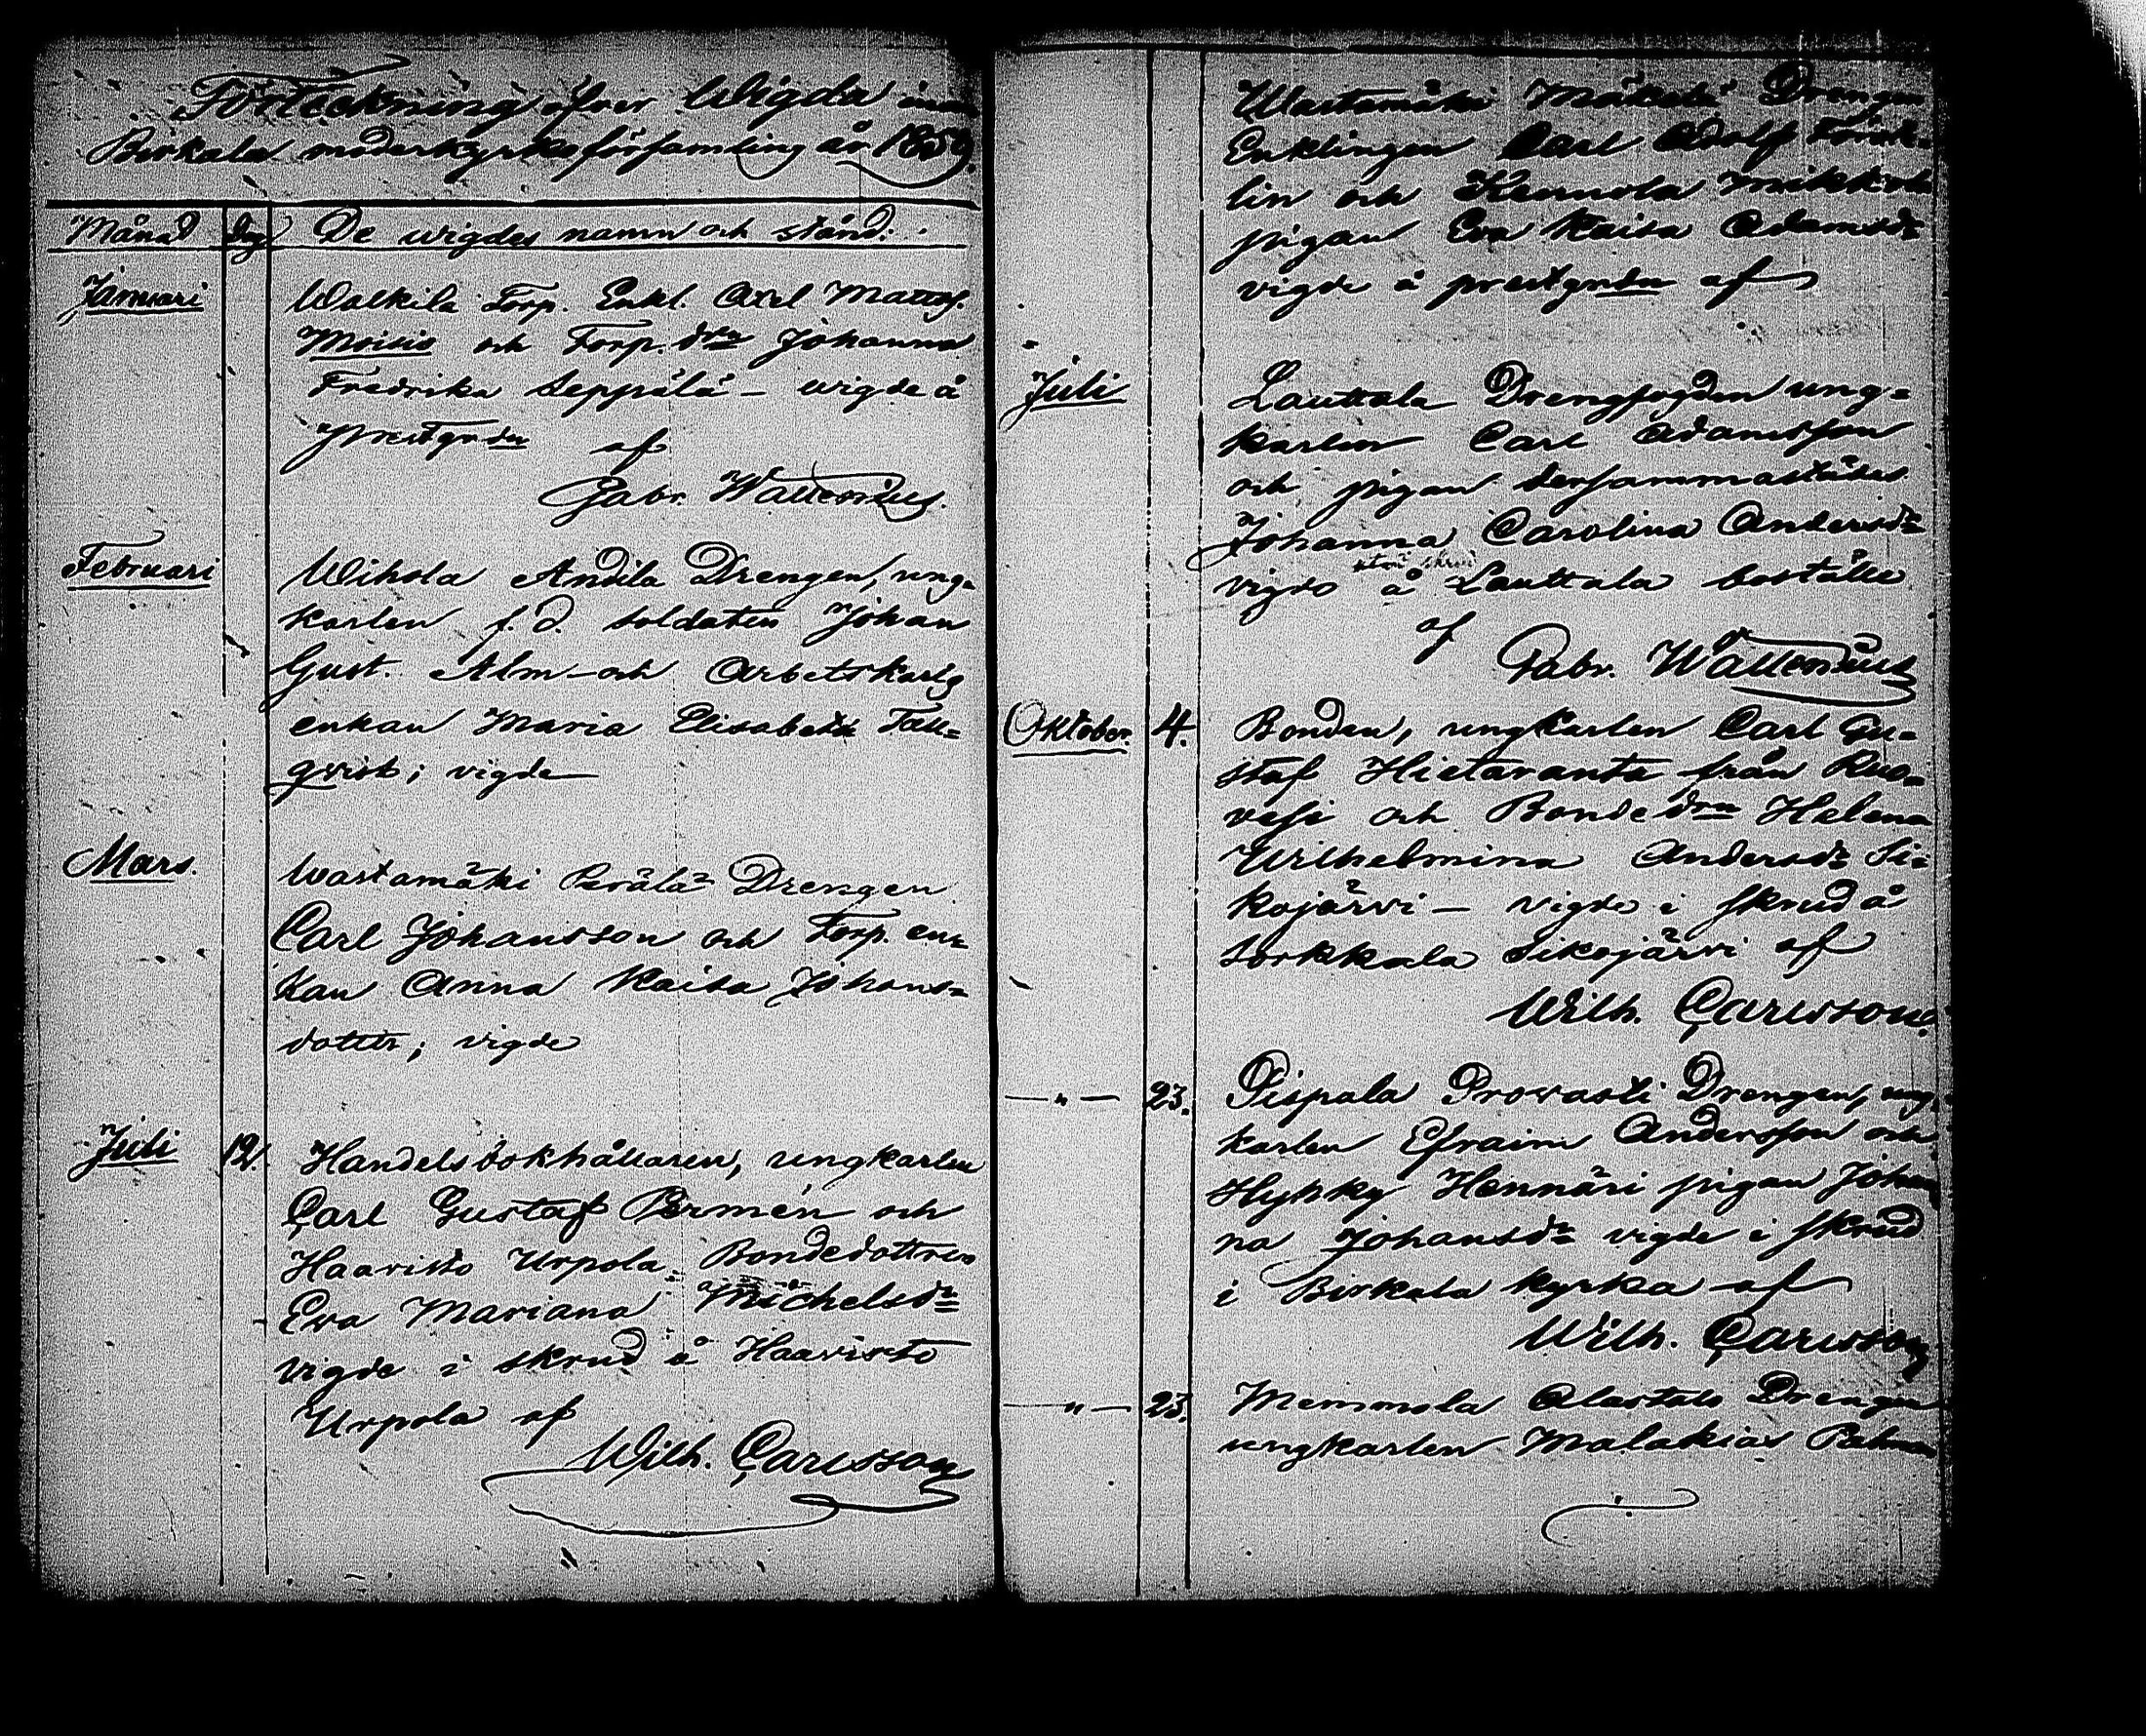 Förteckning öfver Wigda inom
Birkala moderkyrkoförsamling år 1859.
Månad Dag De wigdes namn och stånd.
Januari Walkila Torp. Enkl. Axel Mattss.
Moisio och Torp. drn Johanna
Fredrika Seppälä – wigde å
prestgrden af
Gabr. Wallenius.
Februari Wihola Andila Drengen, ung-
karlen f.d. soldaten Johan
Gust. Alm – och Arbetskarls
enkan Maria Elisabeth Tall=
qvist; vigde
Mars. Wastamäki Perälä Drengen
Carl Johansson och Torp. en=
kan Anna Kaisa Johans=
dotter; vigde
Juli 12. Handelsbokhållaren, ungkarlen
Carl Gustaf Permén och
Haavisto Urpola Bondedottren
Eva Mariana Michelsdr
vigde i skrud å Haavisto
Urpola af
Wilh. Carlsson
Wastamäki Mäkelä Drengen
Enklingen Carl Adolf
lin och Mikkola
pigan Eva Kaisa Adamsdr
vigde å prestgrden af
Juli Lauttala Drengfogden ung=
karlen Carl Adamsson
och pigan dersammastädes
Johanna Carolina Andersdr
vigde å Lauttala boställe
af
Gabr. Wallenius
Oktober. 4. Bonden, ungkarlen Carl Gu=
staf Hietaranta från Ruo=
vesi och Bondedrn Helena
Wilhelmina Andersdr Si=
kojärvi – vigde i skrud å
Sorkkala Sikojärvi af
Wilh. Carlsson.
— „ — 23. Pispala Provasti Drengen, ung
karlen Efraim Andersson och
Hyhky Hennäri pigan Johan
na Johansdr vigde i skrud
i Birkala kyrka af
Wilh. Carlsson
— „ — 23. Memmola Alastalo Drengen
ungkarlen Malakias